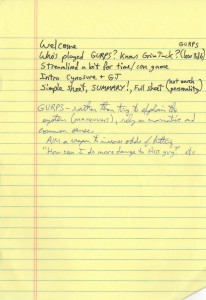 Welcome GURPS
Who's played GURPS? Know Grim
Streamlined a bit for time/con game
Intro Cynosure + GJ
Simple sheet, SUMMARY!, Full sheet (not much personality)
GURPS - rather than try to explain the
system (maneuvers), rely on narrative and
common sense.
Aim a weapon to increase odds of hitting
"How can I do more damage to this guy?" etc